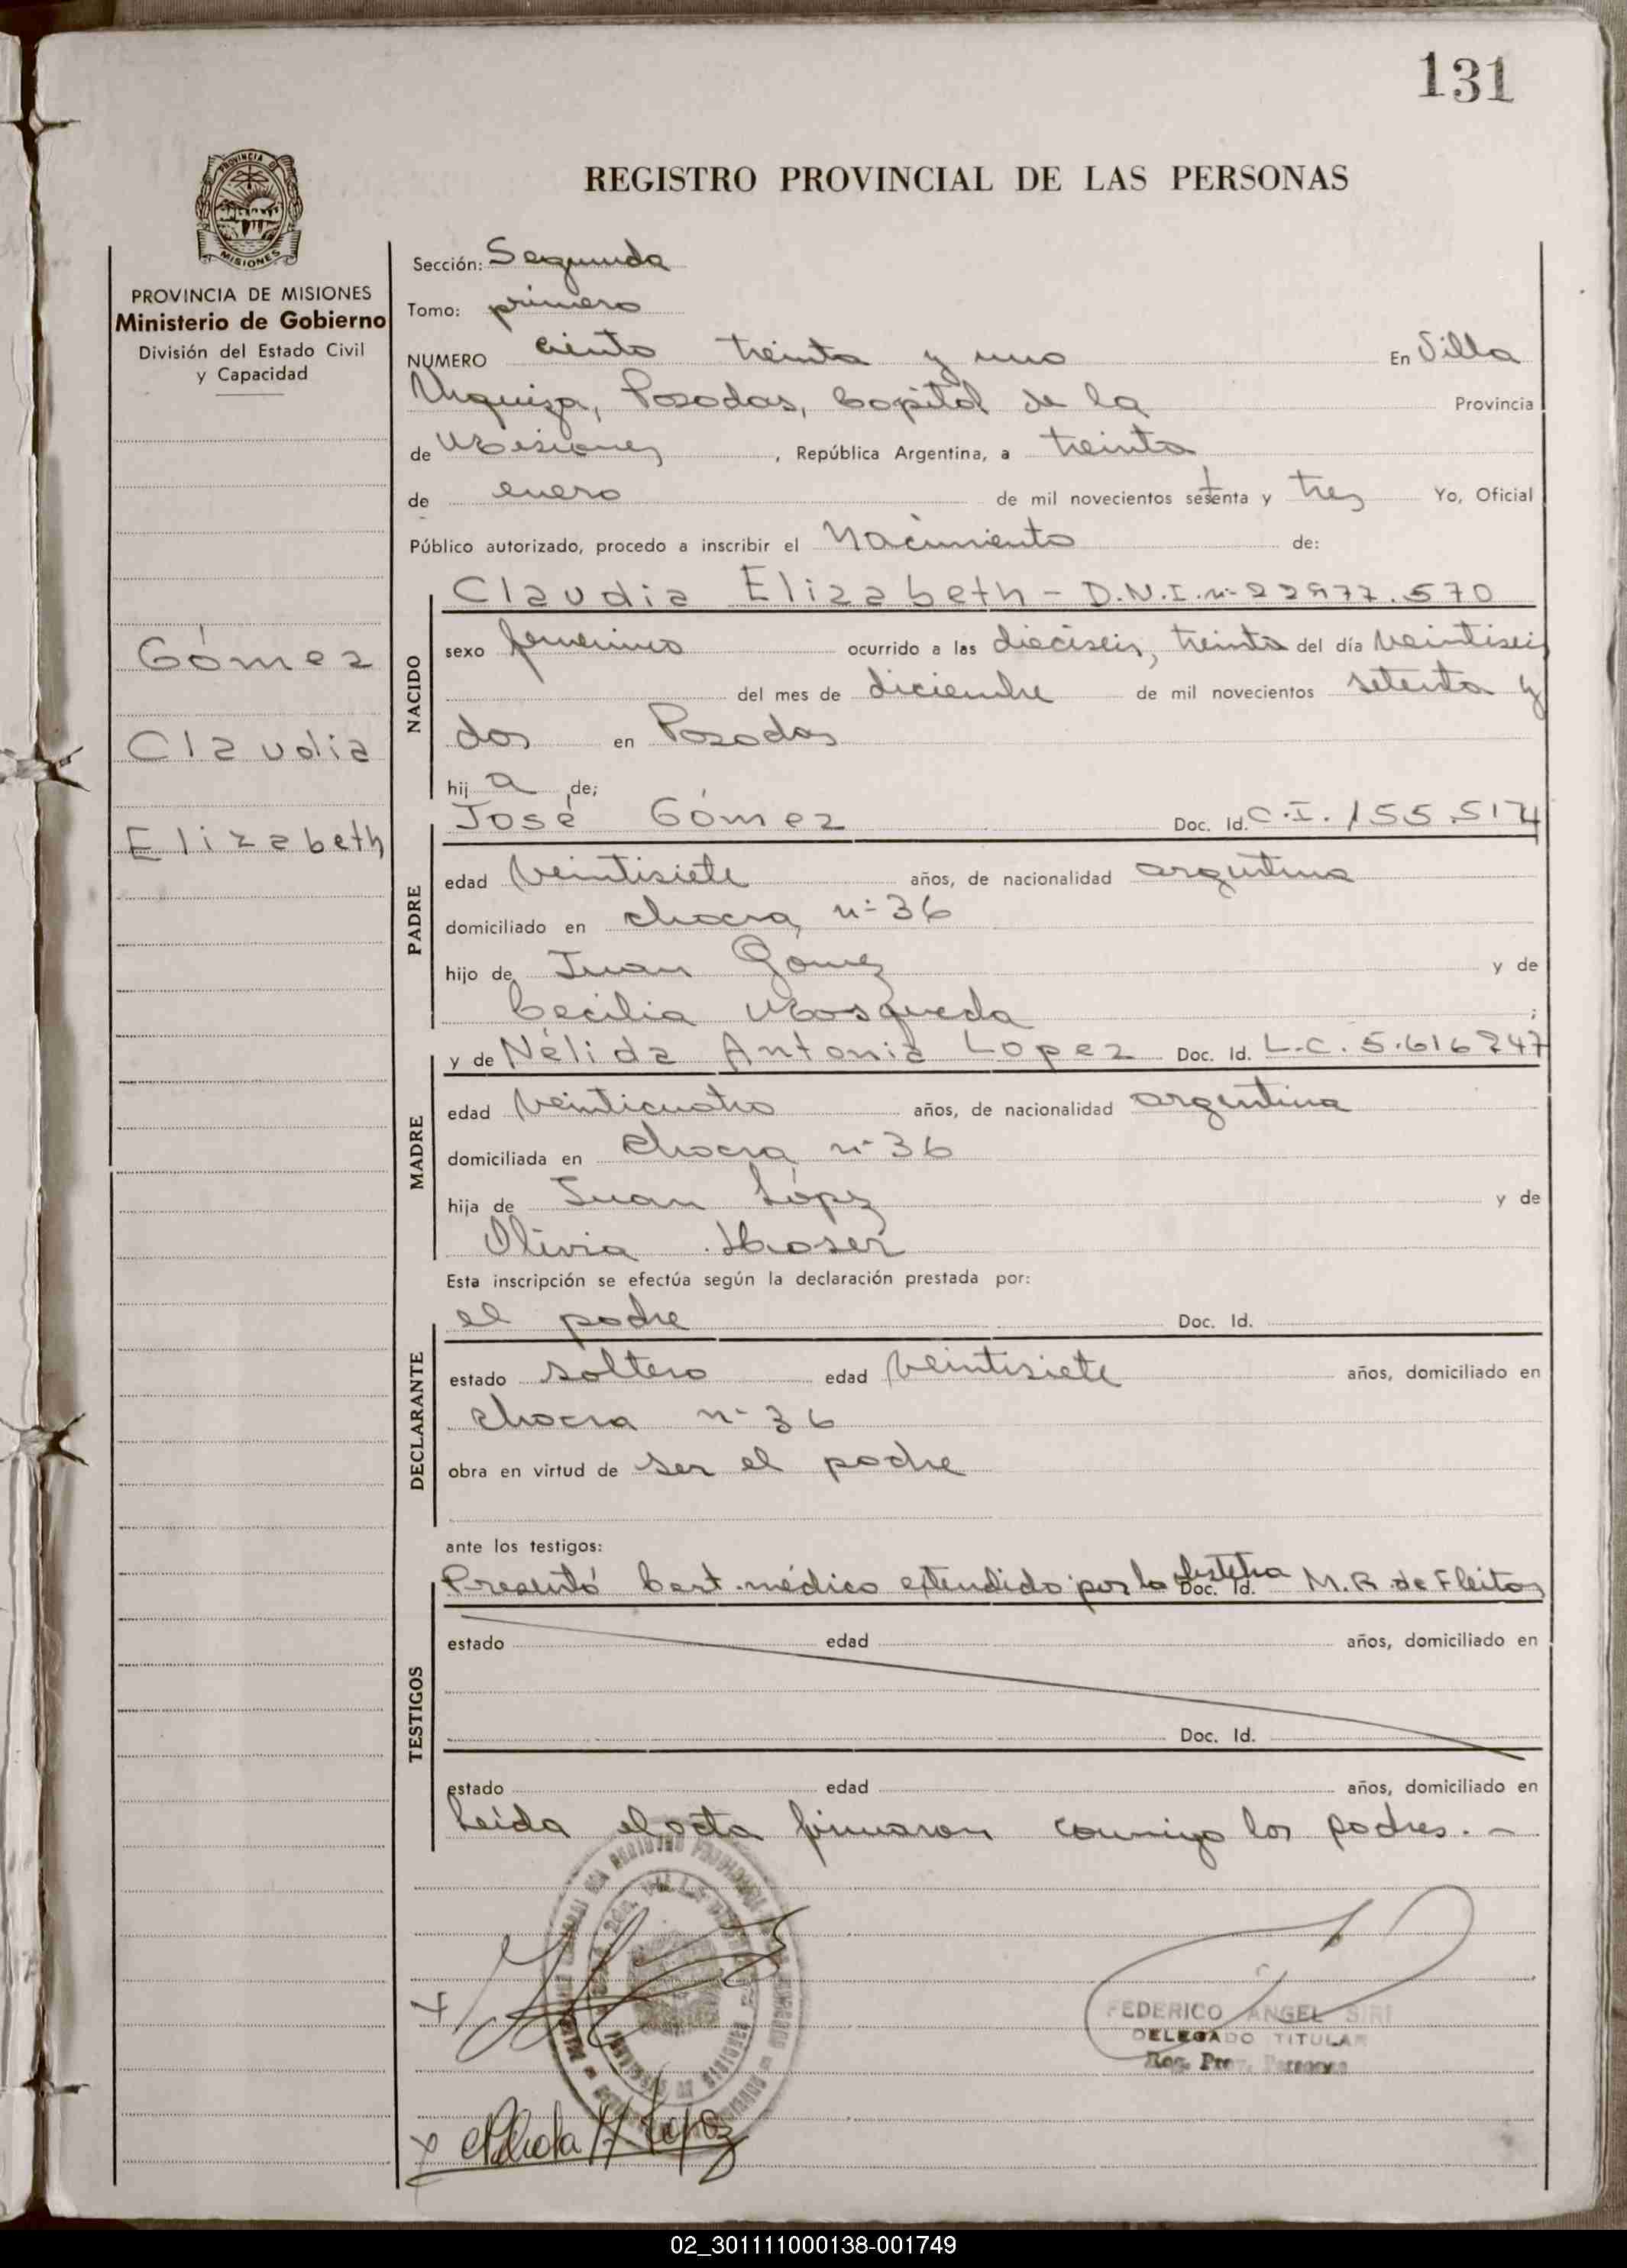 131
PROVINCIA DE
MISIONES
REGISTRO PROVINCIAL DE LAS PERSONAS
PROVINCIA DE MISIONES
Ministerio de Gobierno
División del Estado Civil
y Capacidad
Gómez
Claudia
Elizabeth
Sección: Segunda
Tomo: primero
NUMERO ciento treinta y uno En Villa
Urquiza, Posadas, Capital de la Provincia
de Misiones, República Argentina, a treinta
de enero de mil novecientos setenta y tres Yo, Oficial
Público autorizado, procedo a inscribir el Nacimiento de:
NACIDO
Claudia Elizabeth - D.N.I. nº 22977.570
sexo femenino ocurrido a las dieciseis, treinta del día veintiseis
del mes de diciembre de mil novecientos setenta y
dos en Posadas
hija de;
PADRE
José Gómez Doc. Id. C.I. 155.514
edad veintisiete años, de nacionalidad argentina
domiciliado en chacra nº 36
hijo de Juan Gómez y de
Cecilia Mosqueda ;
MADRE
y de Nélida Antonia Lopez Doc. Id. L.C. 5.616247
edad veinticuatro años, de nacionalidad argentina
domiciliada en chacra nº 36
hija de Juan López y de
Olivia
Esta inscripción se efectúa según la declaración prestada por:
DECLARANTE
el padre Doc. Id.
estado soltero edad veintisiete años, domiciliado en
chacra nº 36
obra en virtud de ser el padre
ante los testigos:
TESTIGOS
Presentó Cert. médico extendido por la obstetra Doc. Id. M.R. de Fleitas
estado edad años, domiciliado en
Doc. Id.
estado edad años, domiciliado en
Leída el acta firmaron conmigo los padres. -
FEDERICO ANGEL SIRI
DELEGADO TITULAR
Reg. Prov. Personas
Lopez
02_301111000138-001749